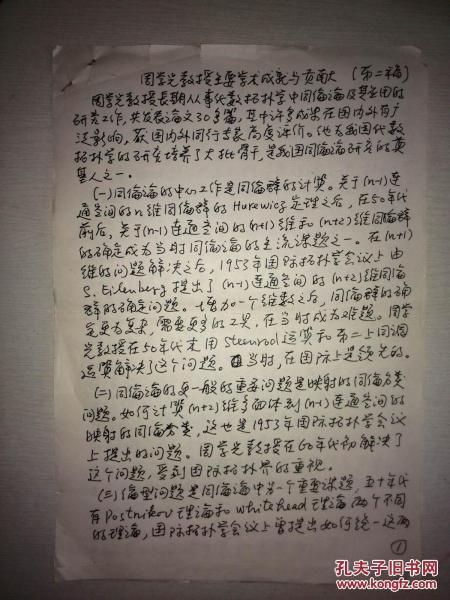 周学光教授主要学术成就与贡献（第二稿）
周学光教授长期从事代数拓扑学中同伦论及其应用的
研究工作，共发表论文30多篇，其中许多成果在国内外有广
泛影响，获国内外同行专家高度评价。他为我国代数
拓扑学的研究培养了大批骨干，是我国同伦论研究的奠
基人之一。
（一）同伦论的中心工作是同伦群的计算。关于(n-1)连
通空间的n维同伦群的Hurewicz定理之后，在50年代
前后，关于(n-1)连通空间的(n+1)维和(n+2)维同伦群
的确定成为当时同伦论的主流课题之一。在(n+1)
维的问题解决之后，1953年国际拓扑学会议上由
S. Eilenberg提出了(n-1)连通空间的(n+2)维同伦
群的确定问题。增加一个维数之后，同伦群的确
定更为复杂，需要更多的工具，在当时成为难题。周学
光教授在50年代末用Steenrod运算和第二上同调
运算解决了这个问题。当时，在国际上是领先的。
（二）同伦论的更一般的重要问题是映射的同伦分类
问题。如何计算(n+2)维多面体到(n-1)连通空间的
映射的同伦分类，这也是1953年国际拓扑学会议
上提出的问题。周学光教授在60年代初解决了
这个问题，受到国际拓扑界的重视。
（三）伦型问题是同伦论中另一个重要课题，五十年代
有Postnikov理论和Whitehead理论两个不同
的理论，国际拓扑学会议上曾提出如何统一这两
①
孔夫子旧书网
www.kongfz.com